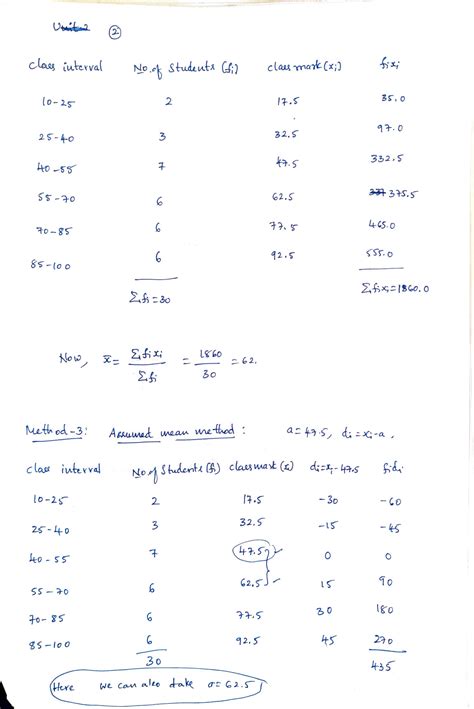 Unit-2 ②
Class interval No. of Students (fi) class mark (xi) fixi
10-25 2 17.5 35.0
25-40 3 32.5 97.0
40-55 7 47.5 332.5
55-70 6 62.5 337 375.5
70-85 6 77.5 465.0
85-100 6 92.5 555.0
Σfi=30 Σfixi=1860.0
Now, x̄ = Σfixi / Σfi = 1860 / 30 = 62.
Method-3: Assumed mean method: a=47.5, di=xi-a,
class interval No of Students (fi) classmark (xi) di=xi-47.5 fidi
10-25 2 17.5 -30 -60
25-40 3 32.5 -15 -45
40-55 7 47.5 0 0
55-70 6 62.5 15 90
70-85 6 77.5 30 180
85-100 6 92.5 45 270
30 435
Here we can also take a=62.5